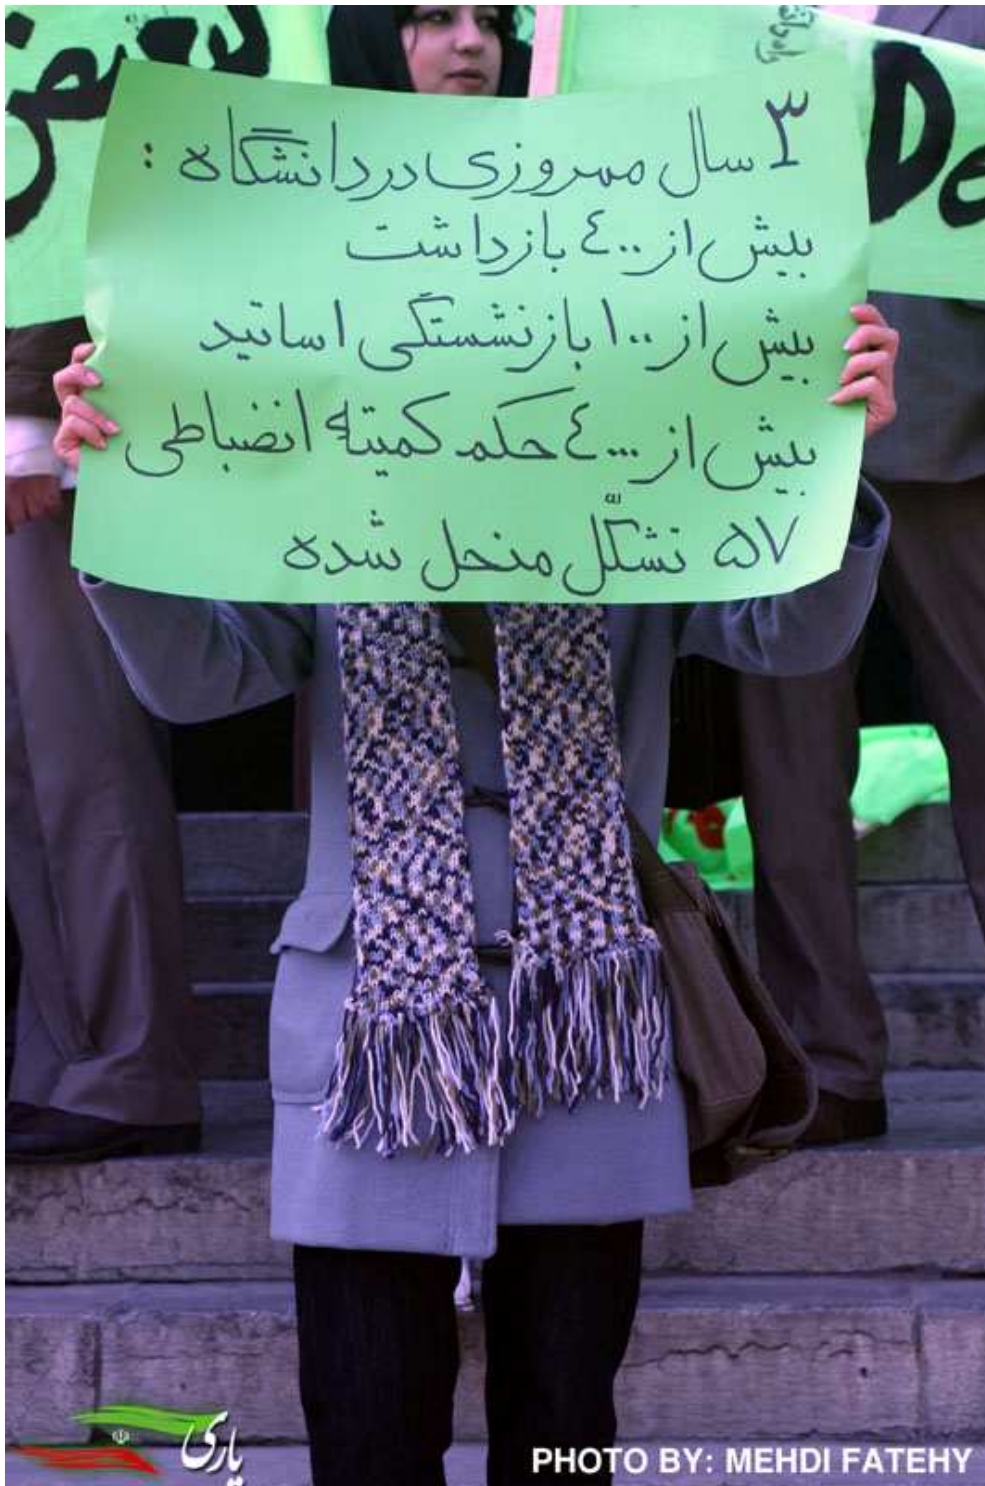 ۳ سال مهروزی در دانشگاه :
بیش از ٤۰۰ بازداشت
بیش از ۱۰۰ بازنشستگی اساتید
بیش از ٤۰۰۰ حکم کمیته انضباطی
۵۷ تشکّل منحل شده
De
یاری
PHOTO BY: MEHDI FATEHY